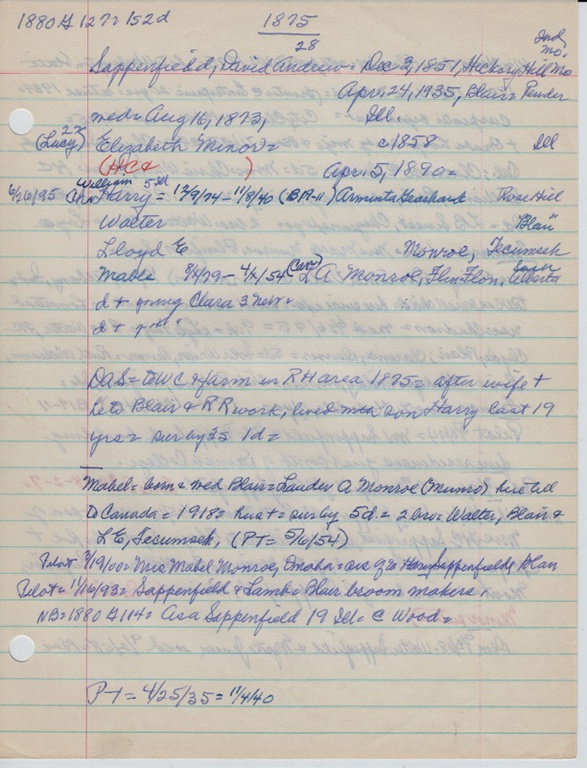 1880 # 127 = 152d 1875
28
Ind
Mo.
Sappenfield, David Andrew = Dec 3, 1851, Hickory Hill Mo
April 24, 1935, Blair = Pender
med = Aug 16, 1873, Ill.
(Lucy) Elizabeth Minor = c1858 Ill
(HC& ) Apr. 5, 1890 =
William 5 Ill
6/26/95 Harry = 12/9/74 - 11/8/40 (BA-11) Araminta Gearhart Rose Hill
Walter Blair
Lloyd E. Monroe, Tecumseh
Mable 8/4/79 - 4/2/54 (Can) L A Monroe, Flin Flon, Alberta
d + young Clara 3 New =
d + yng "
DAS = to WC & farm in RH area 1875 = after wife +
he to Blair & RR work, lived men son Harry last 19
yrs = sur by 3S 1d =
Mabel = born = med Blair = Lauder A. Monroe (Munro) here till
to Canada = 1918 = hus + = sur by 5d = 2 bro = Walter, Blair &
L E, Tecumseh, (PT = 5/6/54)
Pilot 9/19/00 = Mrs Mabel Monroe, Omaha = sis of Harry Sappenfield, Blair
Pilot = 11/16/93 = Sappenfield & Lamb = Blair broom makers,
NB = 1880 # 114 = Asa Sappenfield 19 Ill = C Wood =
PT = 4/25/35 = 11/4/40